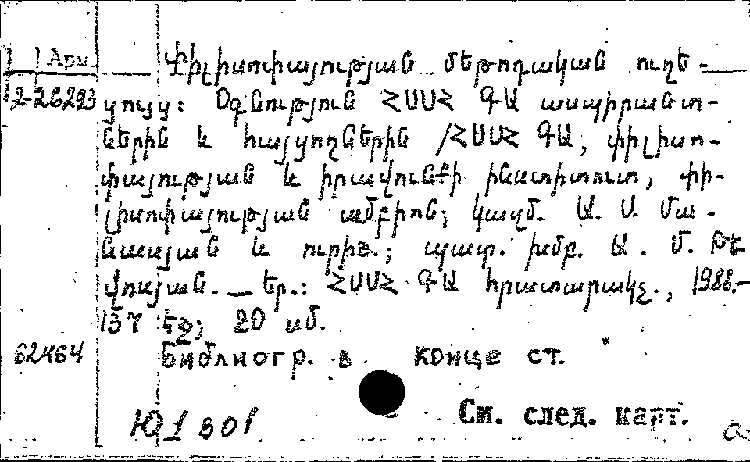 Арм.
2-26293
Փիլիսոփայության մեթոդական ուղե-
ցույց: Օգնություն ՀՍՍՀ ԳԱ ասպիրանտ-
ներին և հայցողներին /ՀՍՍՀ ԳԱ, փիլիսո-
փայության և իրավունքի ինստիտուտ, փի-
լիսոփայության ամբիոն; կազմ. Ա. Ս. Մա-
նասյան և ուրիշ.; պատ. խմբ. Ա. Մ. Թե
վոսյան. — Եր.: ՀՍՍՀ ԳԱ հրատարակչ., 1988.-
157 էջ; 20 սմ.
62464
Библиогр. в конце ст.
Ю1 в01
См. след. карт.